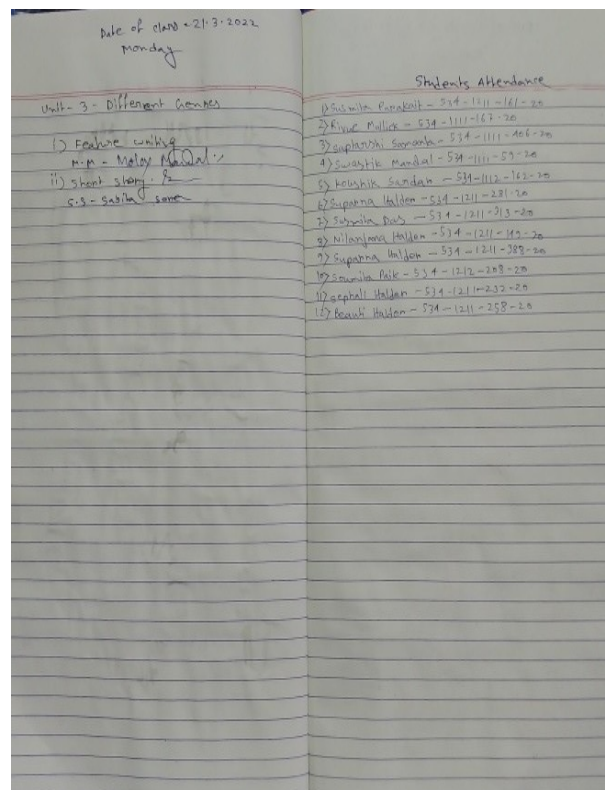 Date of class - 21.3.2022
Monday
Unit - 3 - Different Genres
i) Feature writing
M.M - Moloy Mandal
ii) Short story
S.S - Sabita
Students Attendance
1) Susmita Purakait - 534-1211-161-20
2) Mullick - 534-1111-167-20
3) Saptarshi Samanta - 534-1111-406-20
4) Swastik Mandal - 534-1111-59-20
5) Koushik Sardar - 534-1112-162-20
6) Suparna Halder - 534-1211-281-20
7) Susmita Das - 534-1211-313-20
8) Nilanjana Halder - 534-1211-149-20
9) Suparna Halder - 534-1211-388-20
10) Soumita Paik - 534-1212-208-20
11) Sephali Halder - 534-1211-232-20
12) Beauti Halder - 534-1211-258-20